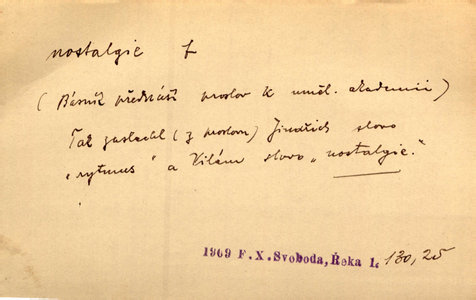 nostalgie f
(Básník přednáší proslov k uměl. akademii)
Tak zaslechl (z proslovu) Jindřich slovo
„rytmus" a Vilém slovo „nostalgie."
1909 F. X. Svoboda, Řeka 1, 130, 25